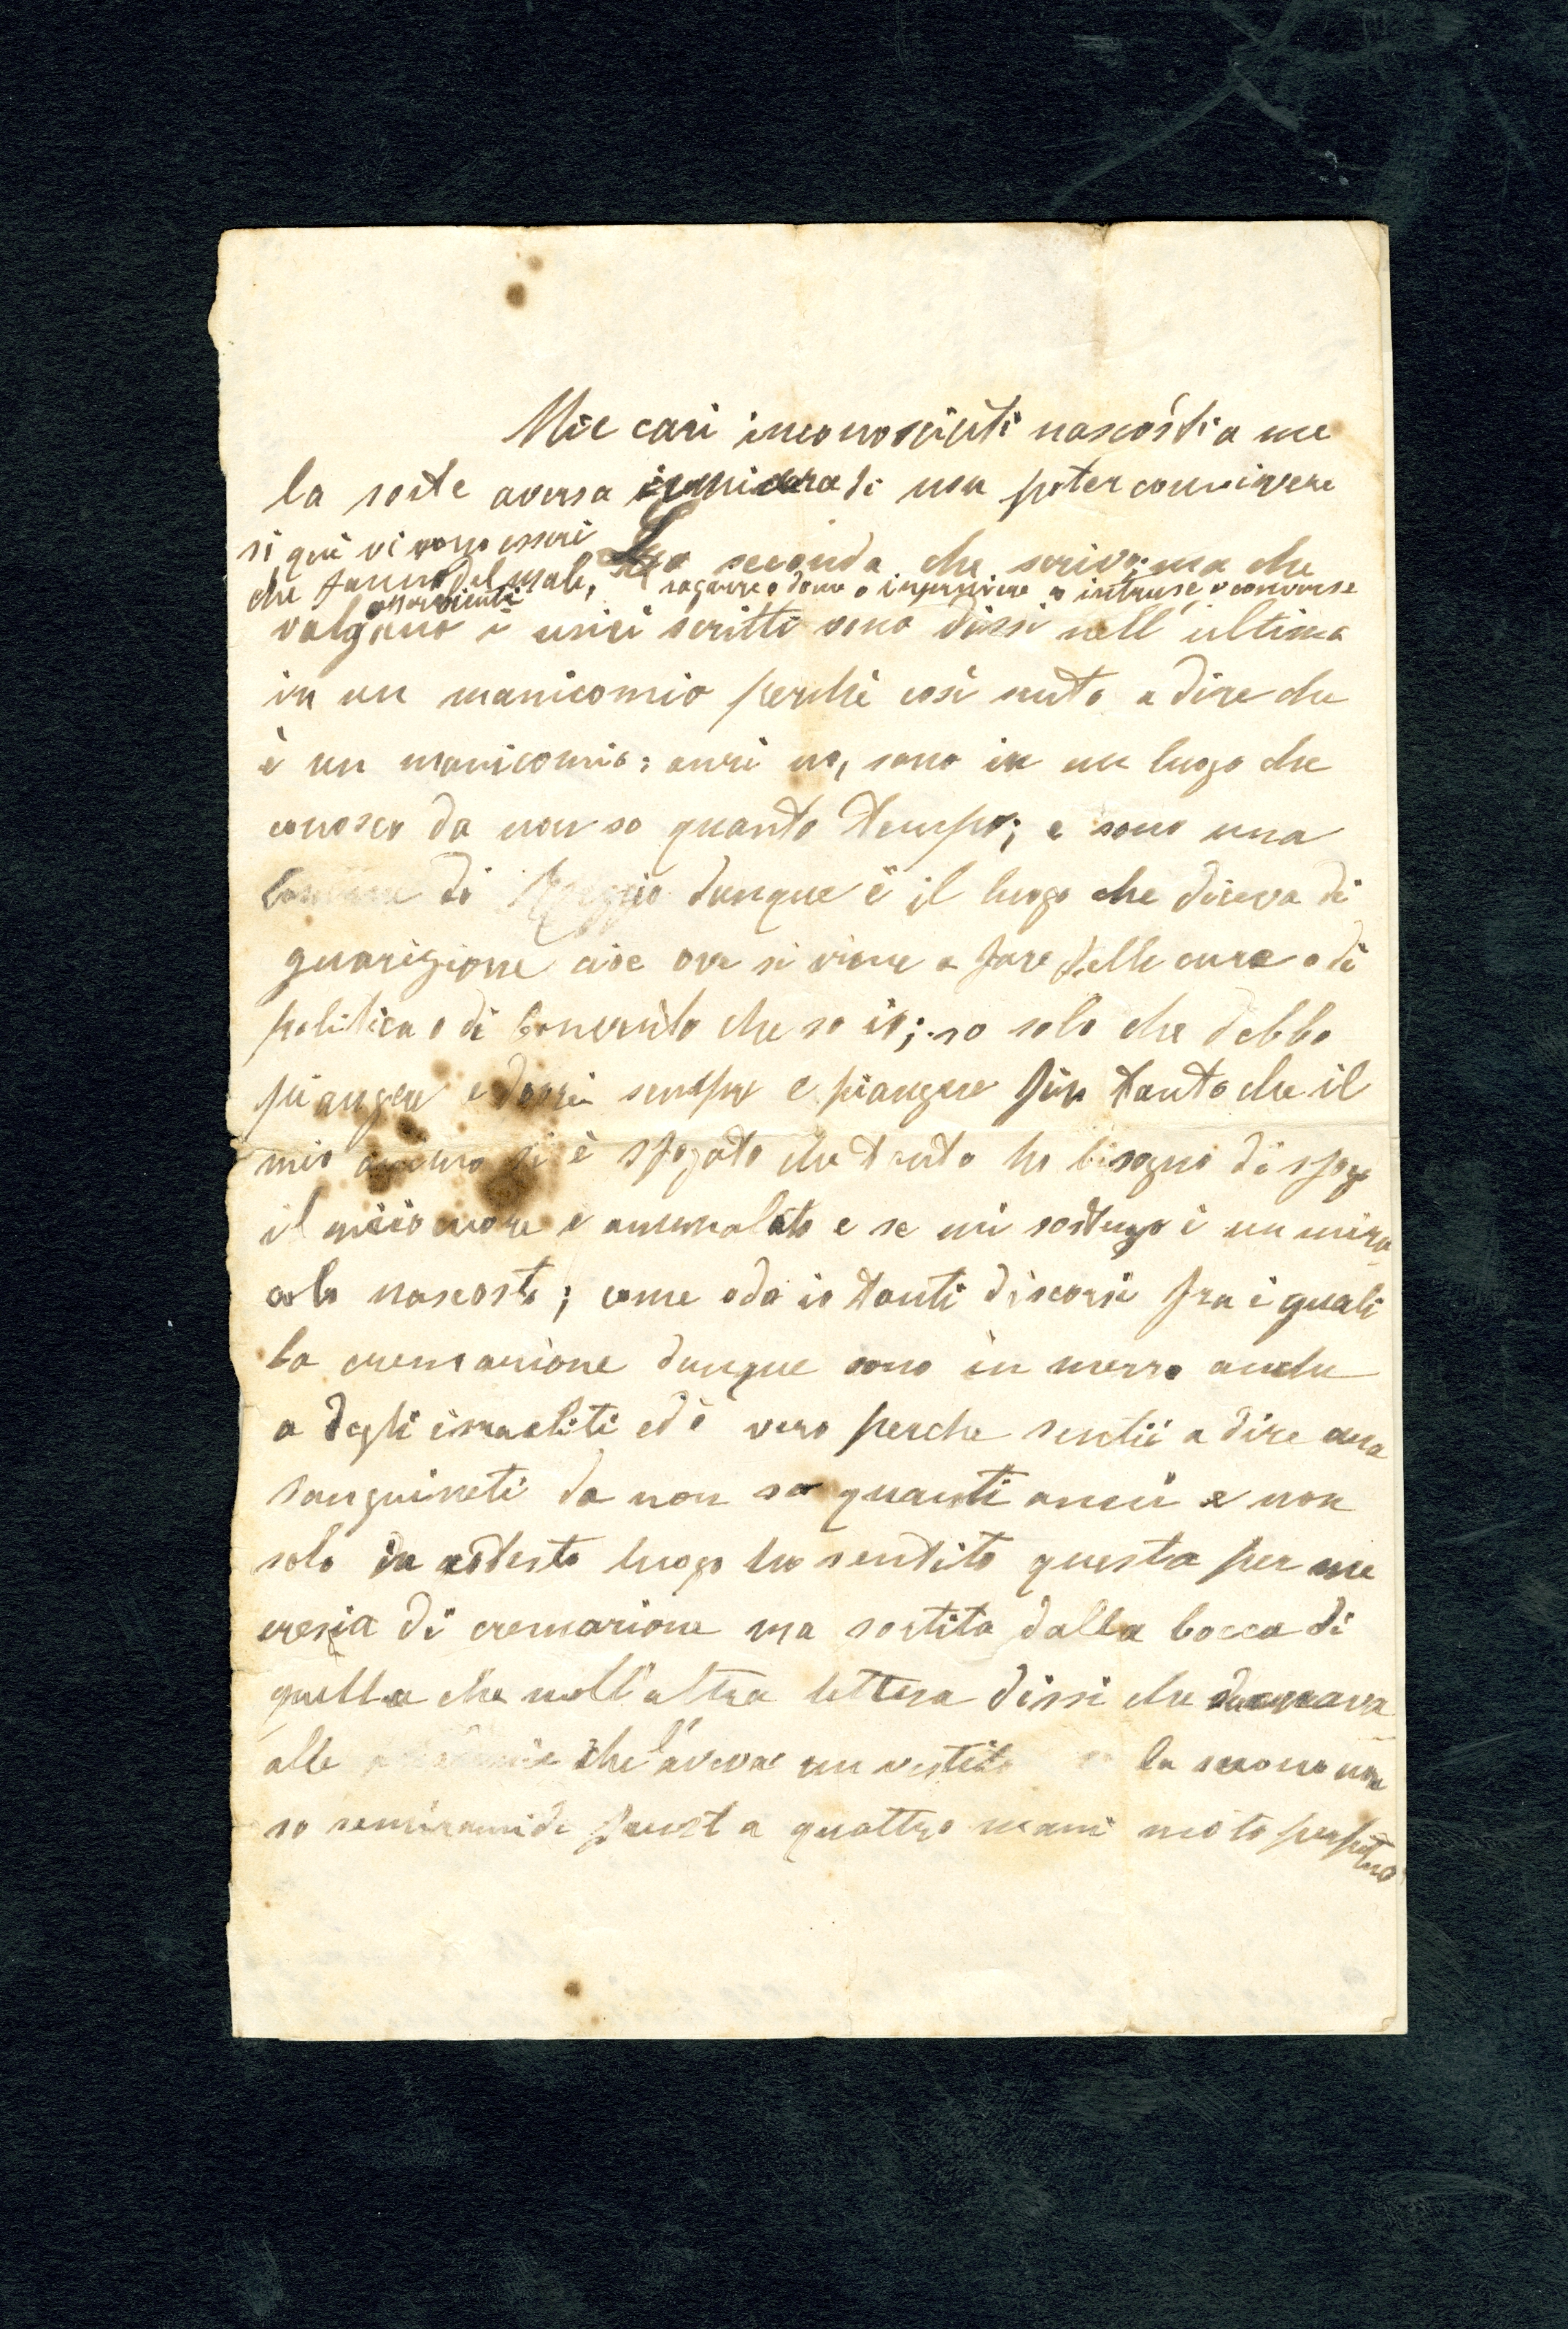 Mie cari inconosciuti nascosti a me
la sorte aversa di non poter convivere
si qui vi sono esseri
che fanno del male,
La seconda che scrivo; ma che
ragazze o donne o infermiere o intruse, o converse
valgano i miei scritti sono dissi nell'ultima
in un manicomio perchè così sento a dire che
è un manicomio: anzi no, sono in un luogo che
conosco da non so quanto tempo; e sono una
di Reggio dunque è il luogo che diceva di
guarigione cioe ove si viene a fare delle cure o di
politica o di che so io; so solo che debbo
piangere e sempre e piangere fin tanto che il
mio animo si è sfogato che tanto ho bisogno di sfogo
il mio cuore è ammalato e se mi sostengo è un mira-
colo nascosto; come odo io tanti discorsi fra i quali
la cremazione dunque sono in mezzo anche
a degli israeliti ed è vero perche sentii a dire una
Sanguineti da non so quanti anni e non
solo in codesto luogo ho sentito questa per me
eresia di cremazione ma sortita dalla bocca di
quella che nell'altra lettera dissi che
alle che l'aveva un vestito la suono non
so semiramide Faust a quattro mani moto perpetuo